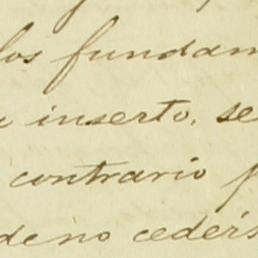 los fundam
inserto, se
contrario p
deno ceders